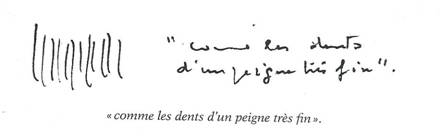 "comme les dents
d'un peigne très fin".
« comme les dents d'un peigne très fin ».